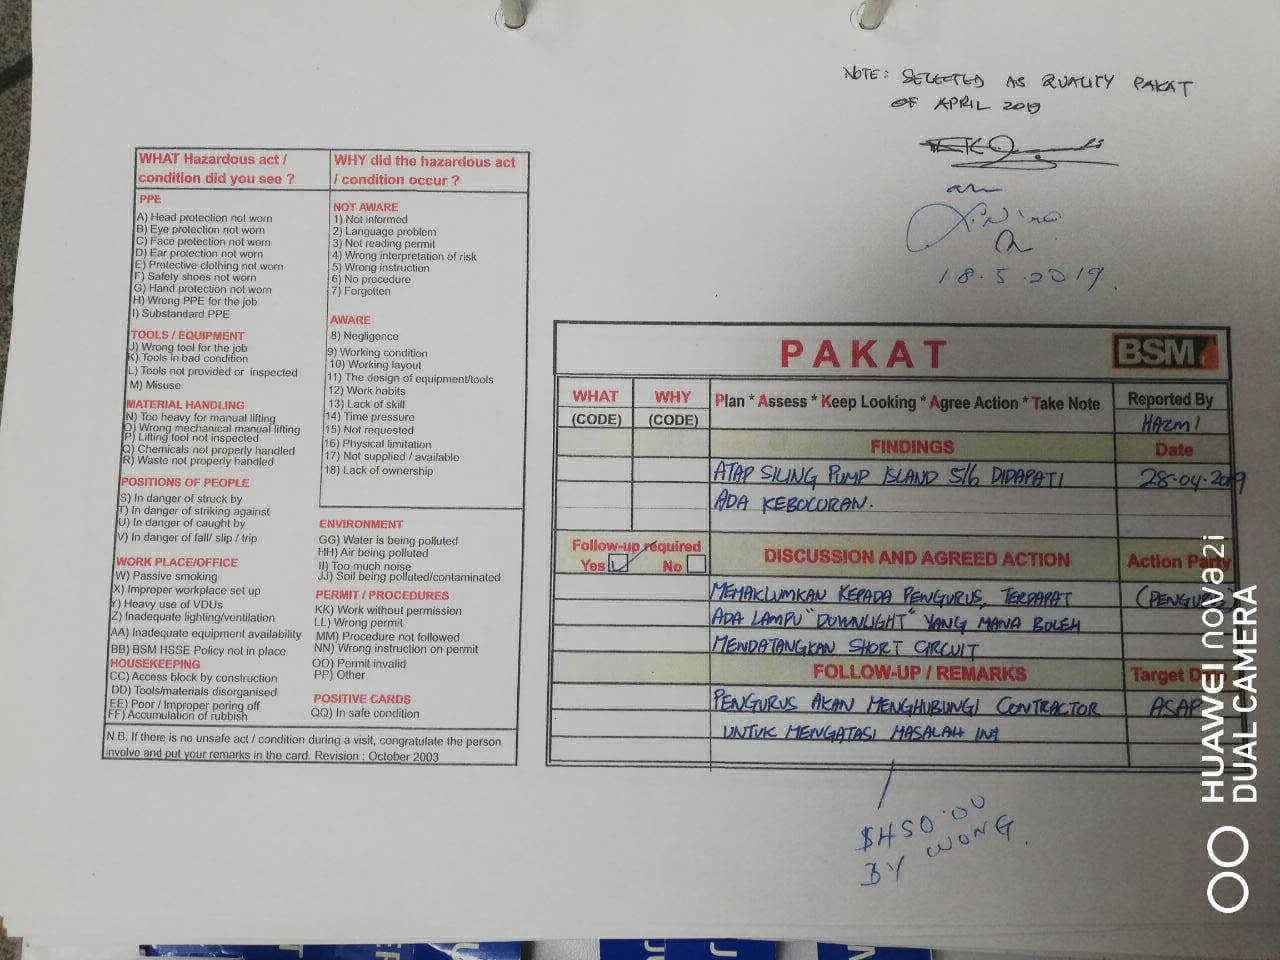 NOTE: SELECTED AS QUALITY PAKAT
OF APRIL 2019
18.5.2019.
WHAT Hazardous act /
condition did you see ?
PPE
A) Head protection not worn
B) Eye protection not worn
C) Face protection not worn
D) Ear protection not worn
E) Protective clothing not worn
F) Safety shoes not worn
G) Hand protection not worn
H) Wrong PPE for the job
I) Substandard PPE
TOOLS / EQUIPMENT
J) Wrong tool for the job
K) Tools in bad condition
L) Tools not provided or inspected
M) Misuse
MATERIAL HANDLING
N) Too heavy for manual lifting
O) Wrong mechanical manual lifting
P) Lifting tool not inspected
Q) Chemicals not properly handled
R) Waste not properly handled
POSITIONS OF PEOPLE
S) In danger of struck by
T) In danger of striking against
U) In danger of caught by
V) In danger of fall/ slip / trip
WORK PLACE/OFFICE
W) Passive smoking
X) Improper workplace set up
Y) Heavy use of VDUs
Z) Inadequate lighting/ventilation
AA) Inadequate equipment availability
BB) BSM HSSE Policy not in place
HOUSEKEEPING
CC) Access block by construction
DD) Tools/materials disorganised
EE) Poor / Improper pering off
FF) Accumulation of rubbish
WHY did the hazardous act
/ condition occur ?
NOT AWARE
1) Not informed
2) Language problem
3) Not reading permit
4) Wrong interpretation of risk
5) Wrong instruction
6) No procedure
7) Forgotten
AWARE
8) Negligence
9) Working condition
10) Working layout
11) The design of equipment/tools
12) Work habits
13) Lack of skill
14) Time pressure
15) Not requested
16) Physical limitation
17) Not supplied / available
18) Lack of ownership
ENVIRONMENT
GG) Water is being polluted
HH) Air being polluted
II) Too much noise
JJ) Soil being polluted/contaminated
PERMIT / PROCEDURES
KK) Work without permission
LL) Wrong permit
MM) Procedure not followed
NN) Wrong instruction on permit
OO) Permit invalid
PP) Other
POSITIVE CARDS
QQ) In safe condition
N.B. If there is no unsafe act / condition during a visit, congratulate the person
involve and put your remarks in the card. Revision : October 2003
PAKAT
BSM
WHAT
(CODE)
WHY
(CODE)
Plan * Assess * Keep Looking * Agree Action * Take Note
Reported By
HAZMI
FINDINGS
Date
ATAP SILING PUMP ISLAND 5/6 DIDAPATI
28-04-2019
ADA KEBOCORAN.
Follow-up required
Yes No
DISCUSSION AND AGREED ACTION
Action Party
MEMAKLUMKAN KEPADA PENGURUS, TERDAPAT
(PENGURUS)
ADA LAMPU "DOWNLIGHT" YANG MANA BOLEH
MENDATANGKAN SHORT CIRCUIT
FOLLOW-UP / REMARKS
Target Date
PENGURUS AKAN MENGHUBUNGI CONTRACTOR
ASAP
UNTUK MENGATASI MASALAH INI
BY WONG.
HUAWEI nova 2i
DUAL CAMERA